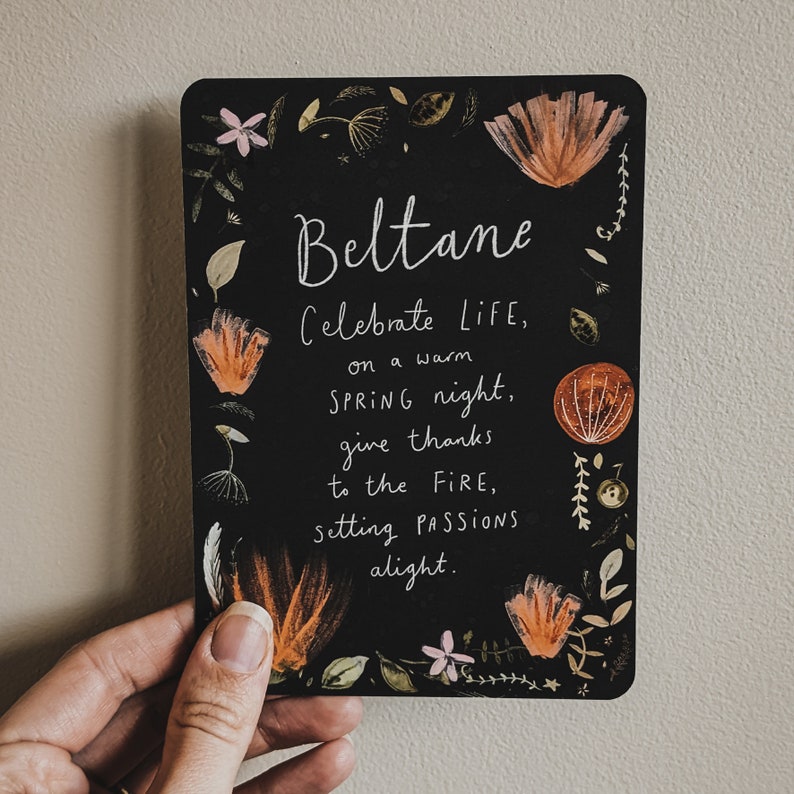 Beltane
Celebrate LiFE,
on a warm
SPRiNG night,
give thanks
to the FiRE,
setting PASSIONS
alight.